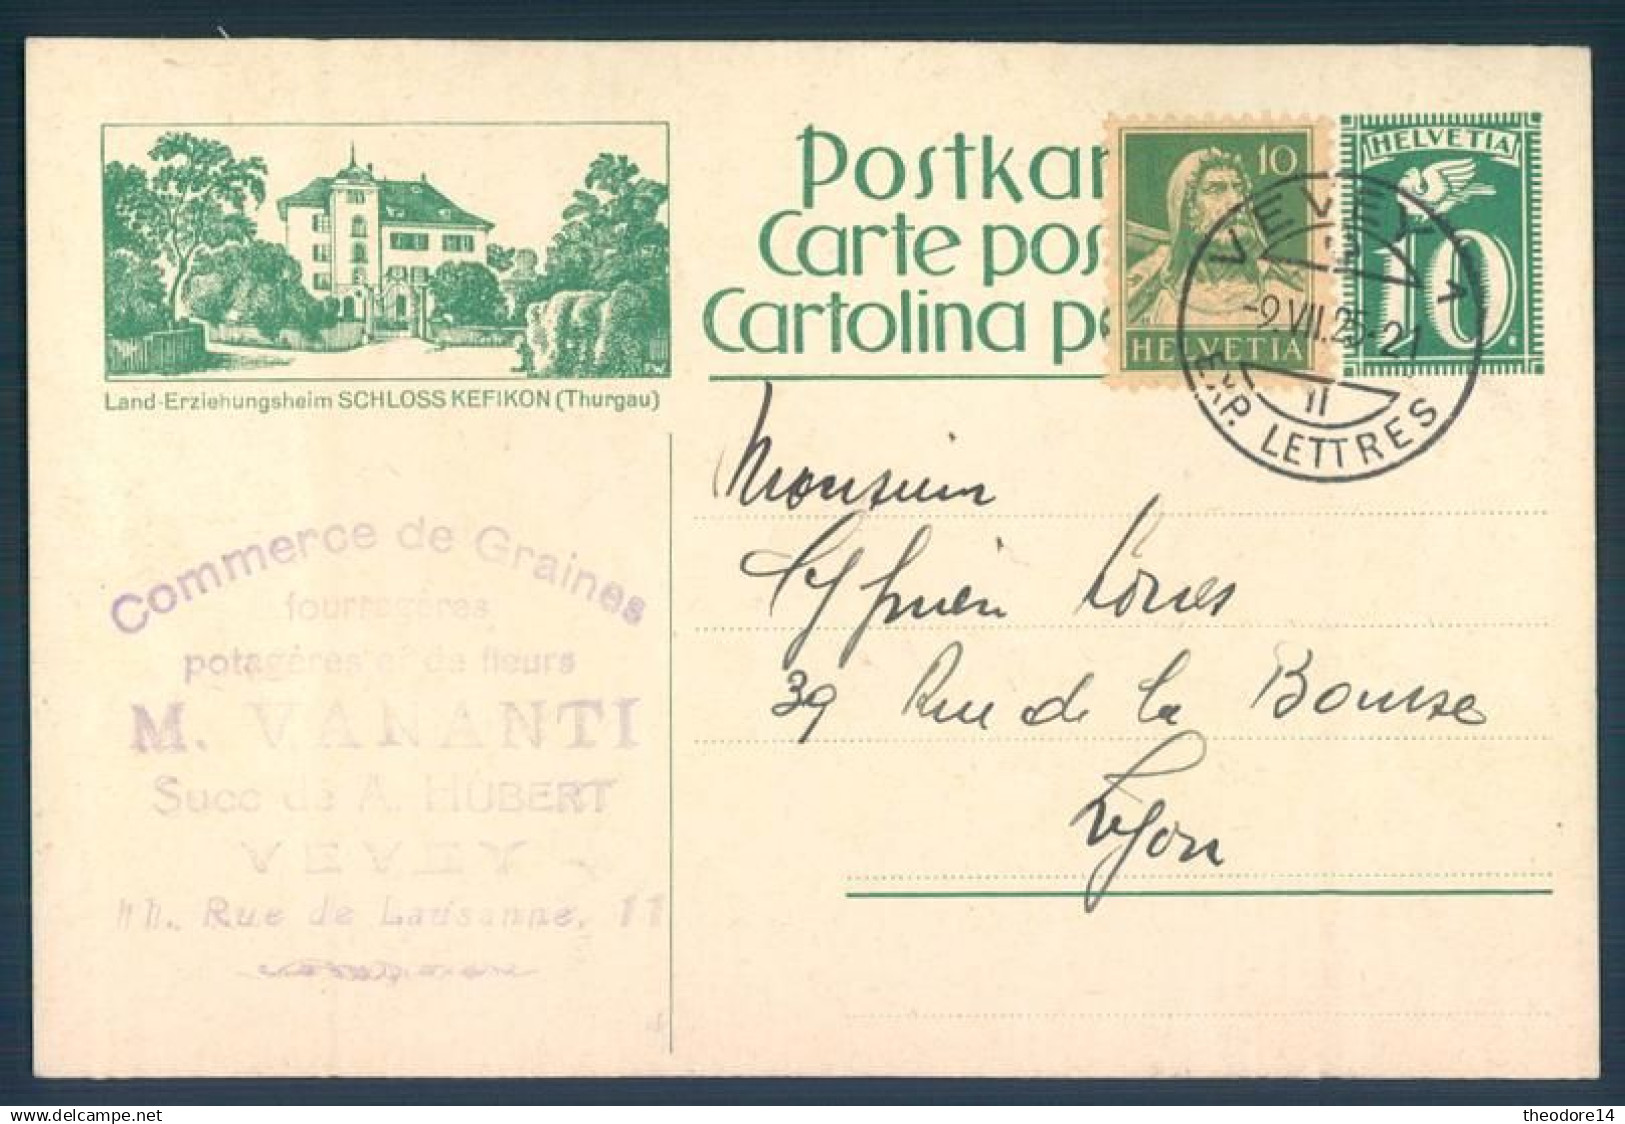 Postkar
Carte pos
Cartolina p
10
HELVETIA
HELVETIA
10
VEVEY
-9.VII.25-21
II
EXP. LETTRES
Land-Erziehungsheim SCHLOSS KEFIKON (Thurgau)
FW
Commerce de Graines
fourragères
potagères et de fleurs
M. VANANTI
Succ de A. HUBERT
VEVEY
11. Rue de Lausanne, 11
Monsieur
39 Rue de la Bourse
Lyon
theodore14